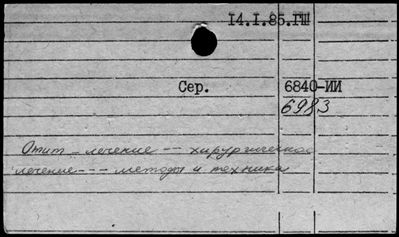 14.I.85.ГШ
Сер. 6840-ИИ
6983
Отит - лечение -- хирургическое
лечение --- методы и техника